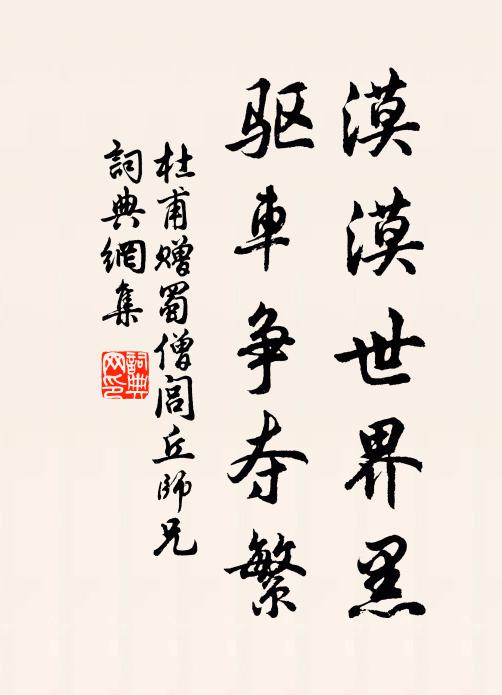 漠漠世界黑
驱車争夺繁
杜甫赠蜀僧闾丘師兄
詞典網集
詞典网印